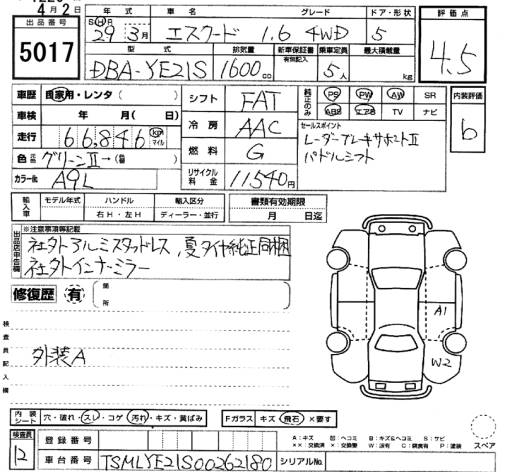 4月2日
出品番号 年式 車名 グレード ドア・形状 評価点
5017 SH 29 3月 エスクード 1.6 4WD 5 4.5
型式 排気量 新車保証書 有無記入 乗車定員 最大積載量
DBA-YE21S 1600cc 5人 kg
車歴 自家用・レンタ( ) シフト FAT 純正のみ PS PW AW SR 内装評価
車検 年 月( 日) 冷房 AAC ABS エアB TV ナビ b
走行 66,846 km マイル 燃料 G セールスポイント
色 グリーンII→( ) リサイクル料金 11540円 レーダーブレーキサポートII
カラーNo. A9L パドルシフト
輸入車 モデル年式 ハンドル 輸入区分 書類有効期限
右H・左H ディーラー・並行 月 日迄
※注意事項等記載
社外アルミスタッドレス,夏タイヤ純正同梱
社外インナーミラー
修復歴 有 箇所
検査員記入欄
外装A
A1
W2
内装シート 穴・破れ・スレ・コゲ・汚れ・キズ・黄ばみ Fガラス キズ・飛石・×要す
検査員 登録番号 A:キズ 凹:ヘコミ B:キズ&ヘコミ S:サビ スペア
12 ××:交換済 ×:交換要 W:波有 C:腐食有 P:塗装
車台番号 TSMLYE21S00262180 シリアルNo.